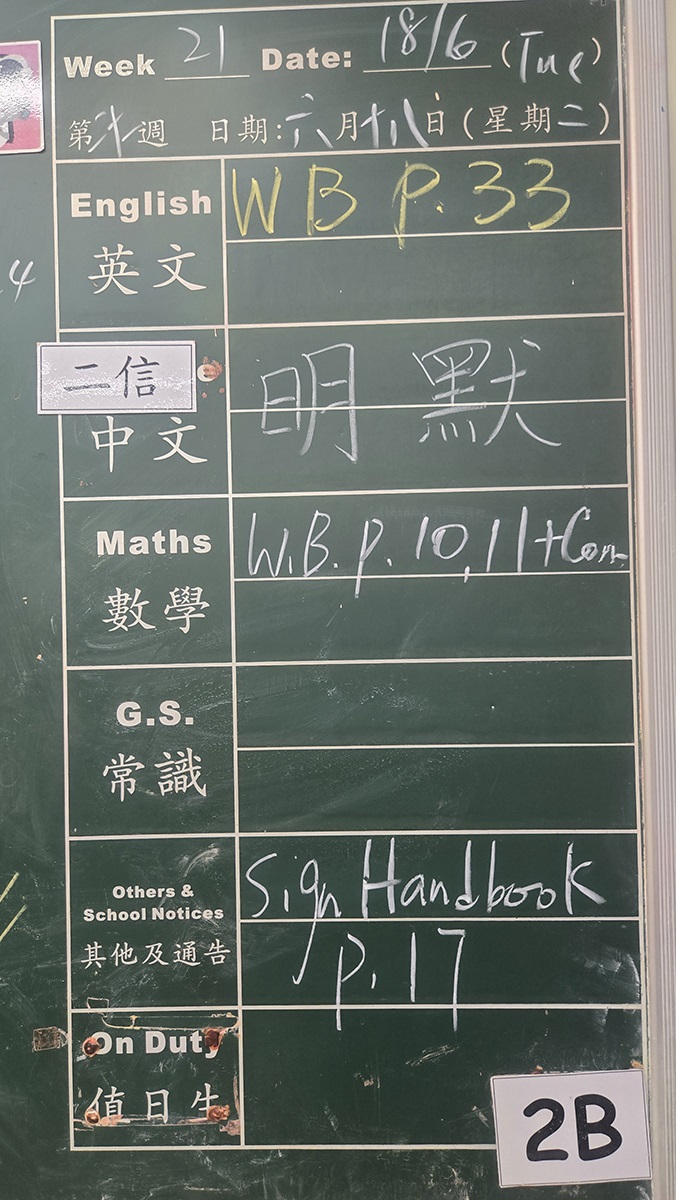 Week 21 Date: 18/6 (Tue)
第 週 日期:六月十八日(星期二)
English WB P.33
英文
二信
中文 明 默
Maths W.B. p. 10, 11 + Corr
數學
G.S.
常識
Others &
School Notices
其他及通告
Sign Handbook
p. 17
On Duty
值日生
2B
4